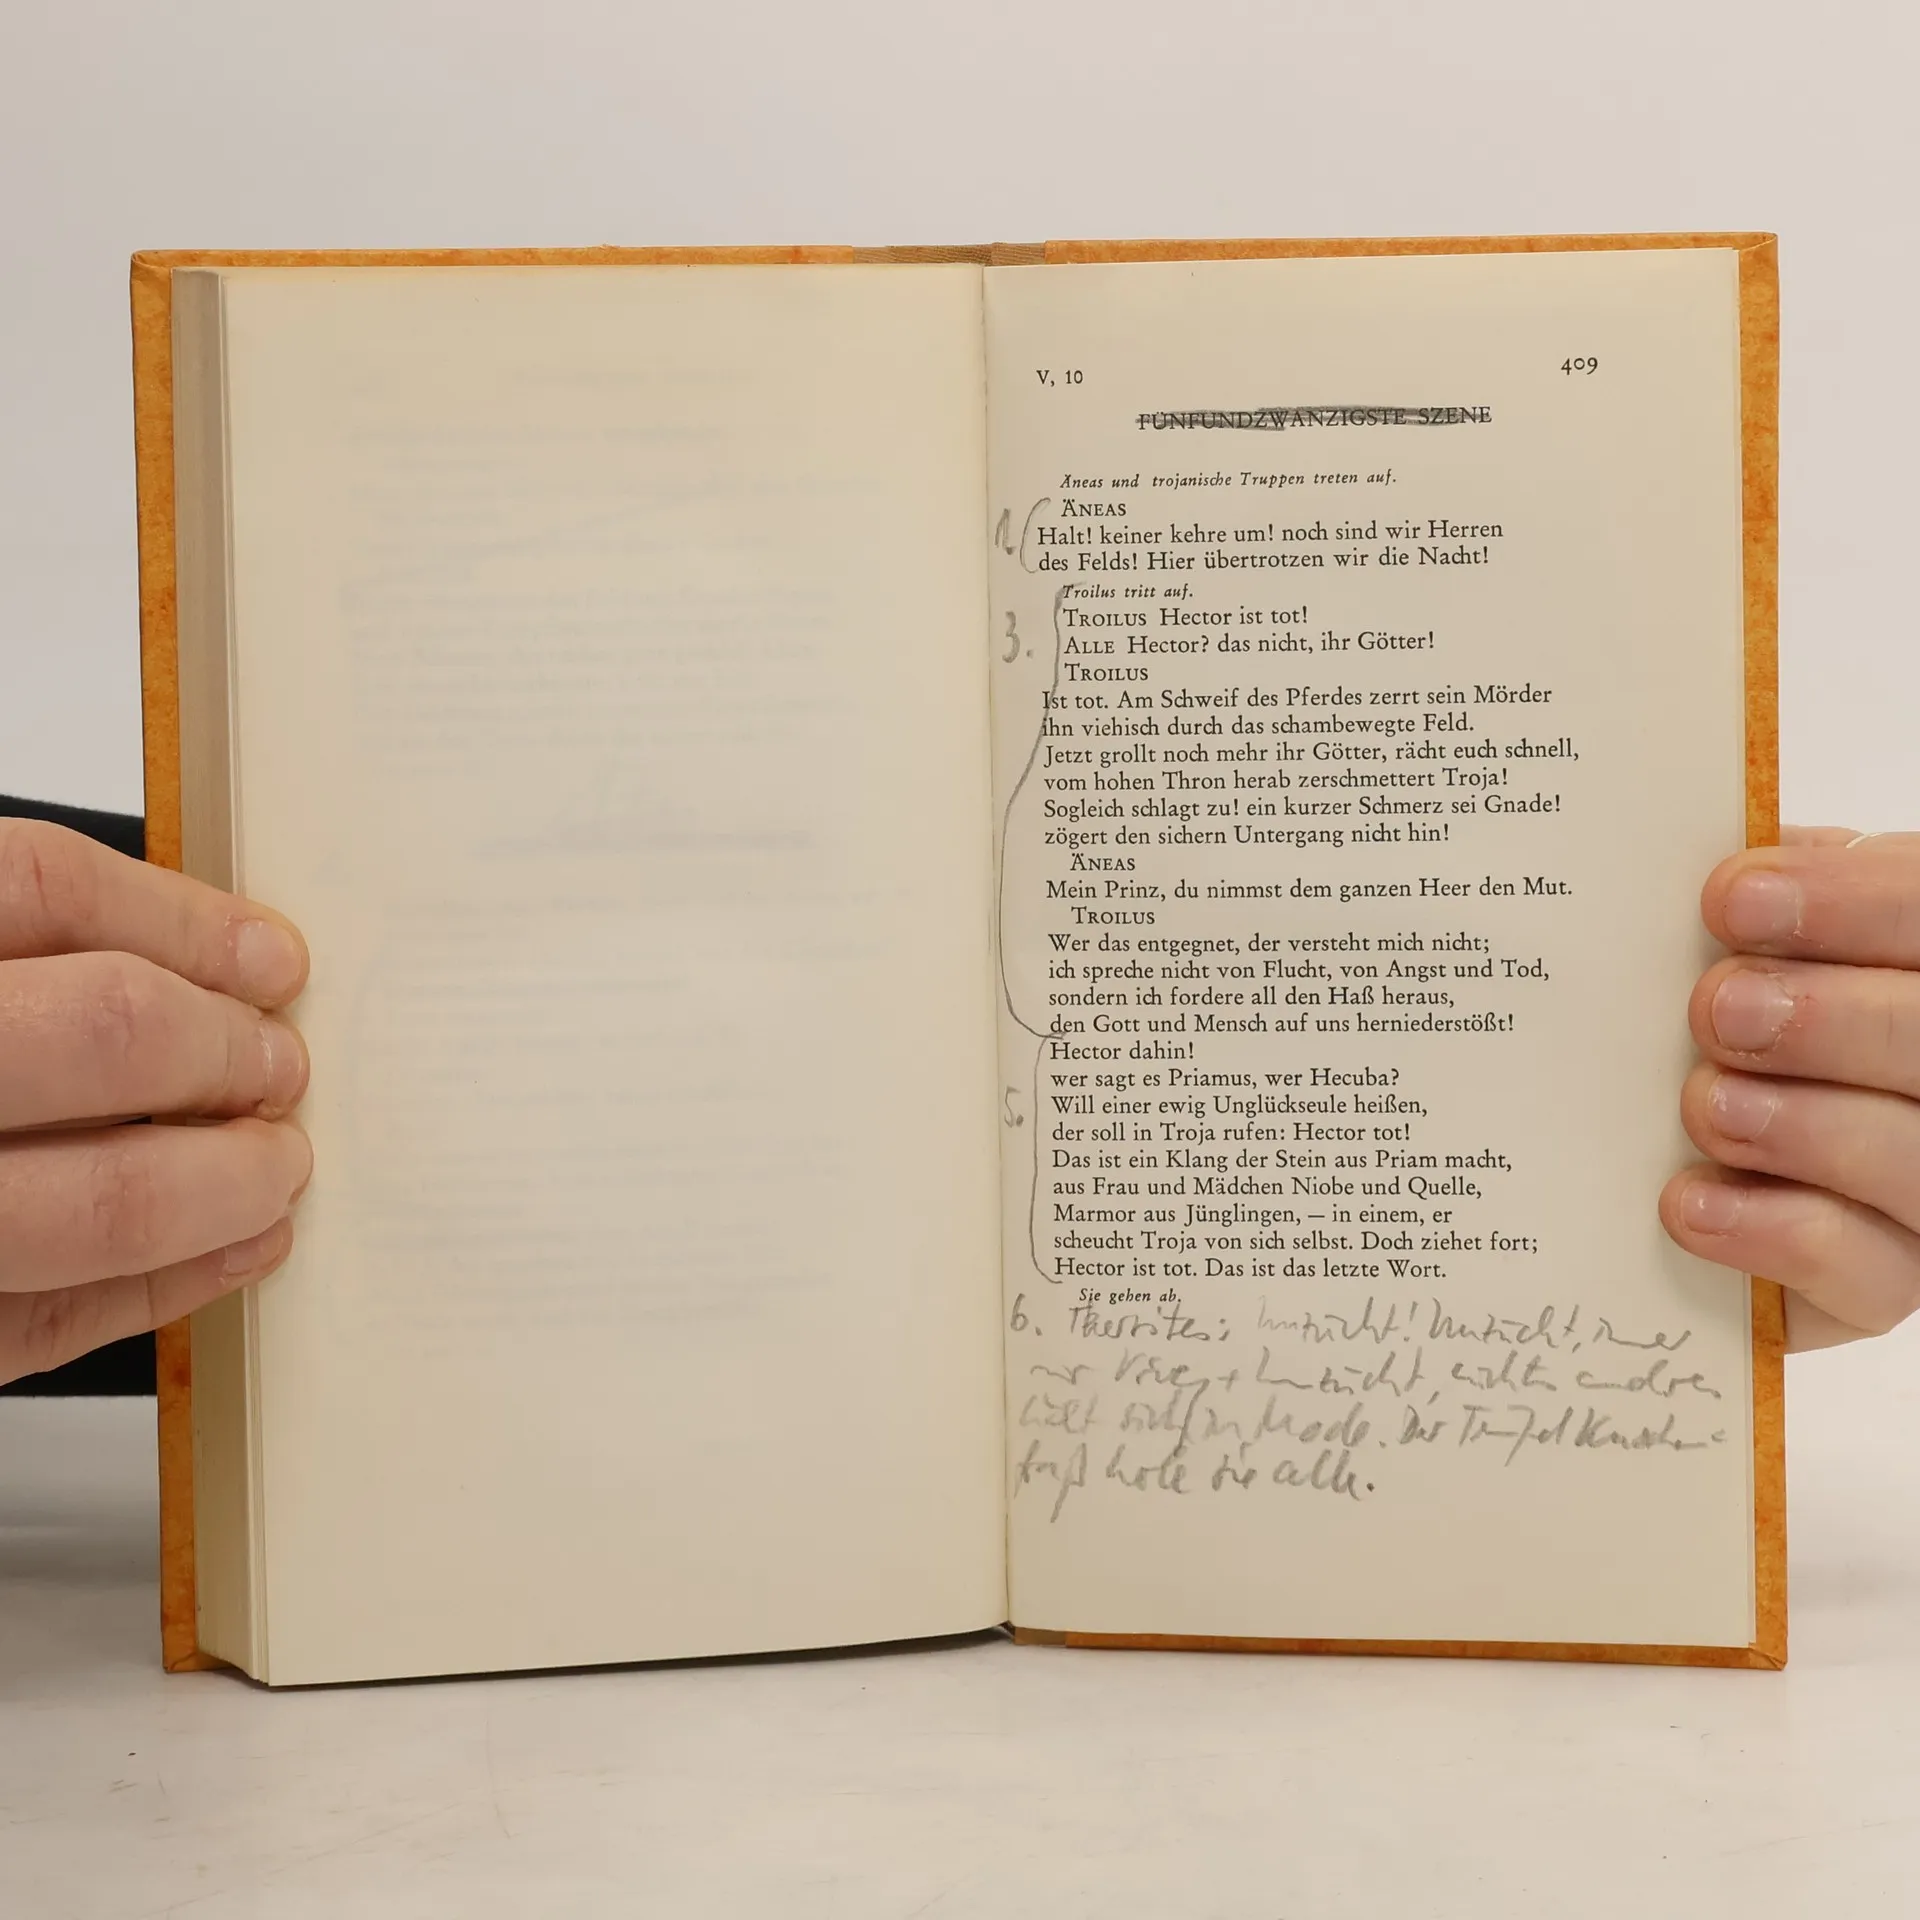 V, 10 409
FÜNFUNDZWANZIGSTE SZENE
Äneas und trojanische Truppen treten auf.
1.
ÄNEAS
Halt! keiner kehre um! noch sind wir Herren
des Felds! Hier übertrotzen wir die Nacht!
Troilus tritt auf.
3.
TROILUS Hector ist tot!
ALLE Hector? das nicht, ihr Götter!
TROILUS
Ist tot. Am Schweif des Pferdes zerrt sein Mörder
ihn viehisch durch das schambewegte Feld.
Jetzt grollt noch mehr ihr Götter, rächt euch schnell,
vom hohen Thron herab zerschmettert Troja!
Sogleich schlagt zu! ein kurzer Schmerz sei Gnade!
zögert den sichern Untergang nicht hin!
ÄNEAS
Mein Prinz, du nimmst dem ganzen Heer den Mut.
TROILUS
Wer das entgegnet, der versteht mich nicht;
ich spreche nicht von Flucht, von Angst und Tod,
sondern ich fordere all den Haß heraus,
den Gott und Mensch auf uns herniederstößt!
Hector dahin!
wer sagt es Priamus, wer Hecuba?
Will einer ewig Unglückseule heißen,
5.
der soll in Troja rufen: Hector tot!
Das ist ein Klang der Stein aus Priam macht,
aus Frau und Mädchen Niobe und Quelle,
Marmor aus Jünglingen, — in einem, er
scheucht Troja von sich selbst. Doch ziehet fort;
Hector ist tot. Das ist das letzte Wort.
Sie gehen ab.
6. Thersites: Unzucht! Unzucht, immer
nur Krieg + Unzucht, nichts andres
hält sich in Mode. Der Teufel
hole sie alle.